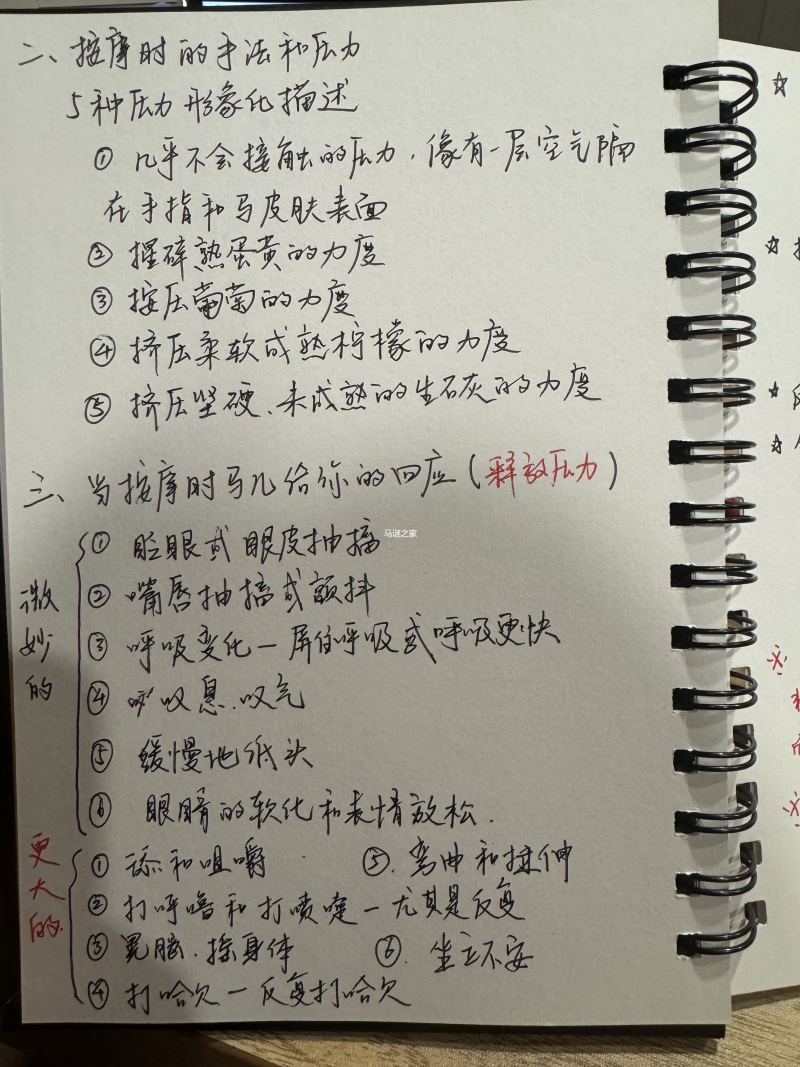 二、按摩时的手法和压力
5种压力形象化描述
① 几乎不会接触的压力，像有一层空气隔
在手指和马皮肤表面
② 握碎熟蛋黄的力度
③ 按压葡萄的力度
④ 挤压柔软成熟柠檬的力度
⑤ 挤压坚硬、未成熟的生石灰的力度
三、当按摩时马儿给你的回应(释放压力)
微妙的
① 眨眼或眼皮抽搐
② 嘴唇抽搐或颤抖
③ 呼吸变化—屏住呼吸或呼吸更快
④ 叹息、叹气
⑤ 缓慢地低头
⑥ 眼睛的软化和表情放松.
更大的.
① 舔和咀嚼
② 打呼噜和打喷嚏—尤其是反复
③ 晃脑、摇身体
④ 打哈欠—反复打哈欠
⑤. 弯曲和拉伸
⑥. 坐立不安
马谜之家